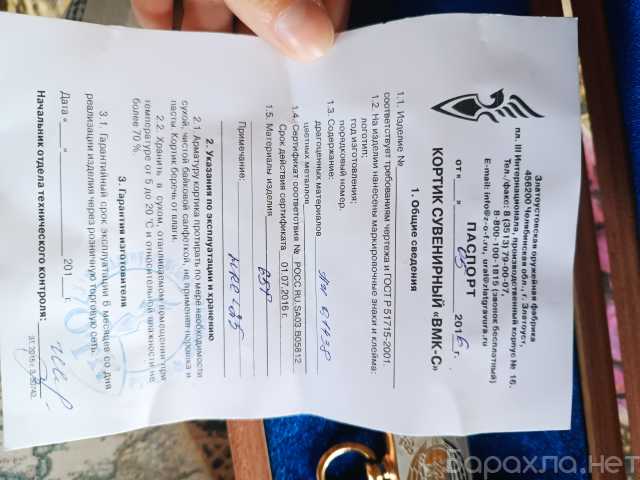 Златоустовская оружейная фабрика
456200 Челябинская обл., г. Златоуст,
пл. III Интернационала, производственный корпус № 16.
Тел./факс: 8 (3513) 79-00-07,
8-800-100-1815 (звонок бесплатный)
E-mail: info@z-o-f.ru, ural@zlatgravura.ru
ПАСПОРТ
от « » 05 2016 г.
КОРТИК СУВЕНИРНЫЙ «ВМК-С»
1. Общие сведения
1.1. Изделие №
соответствует требованиям чертежа и ГОСТ Р 51715-2001.
1.2. На изделии нанесены маркировочные знаки и клейма:
логотип:
год изготовления:
порядковый номер.
1.3. Содержание:
драгоценных материалов
цветных металлов
1.4. Сертификат соответствия № РОСС RU.SA03.В05812
Срок действия сертификата 01.07.2016 г.
1.5. Материалы изделия
Примечание:
2. Указания по эксплуатации и хранению
2.1. Арматуру кортика протирать по мере необходимости
сухой, чистой байковой салфеткой, не применяя порошка и
пасты. Кортик беречь от влаги.
2.2. Хранить в сухом, отапливаемом помещении при
температуре от 5 до 20 °С и относительной влажности не
более 70 %.
3. Гарантия изготовителя
3.1. Гарантийный срок эксплуатации 6 месяцев со дня
реализации изделия через розничную торговую сеть.
Дата « » 201 г.
Начальник отдела технического контроля:
Барахла.нет